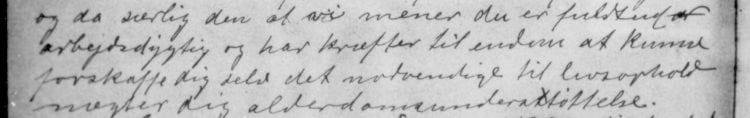 og da særlig den at vi mener du er fuldtud
arbejdsdygtig og har kræfter til endnu at kunne
forskaffe dig selv det nødvendige til livsophold
nægter dig alderdomsunderstøttelse.